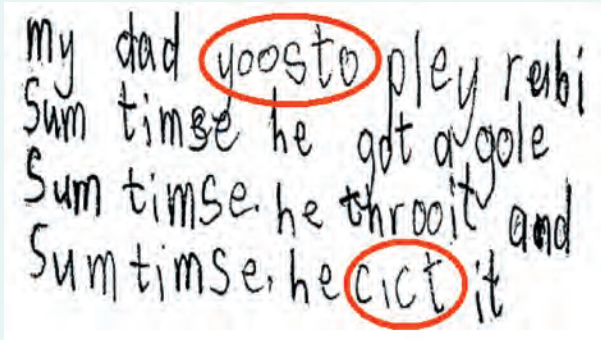 my dad yoosto pley rubi
Sum timse he got a gole
Sum timse. he throoit and
Sum timse. he cict it